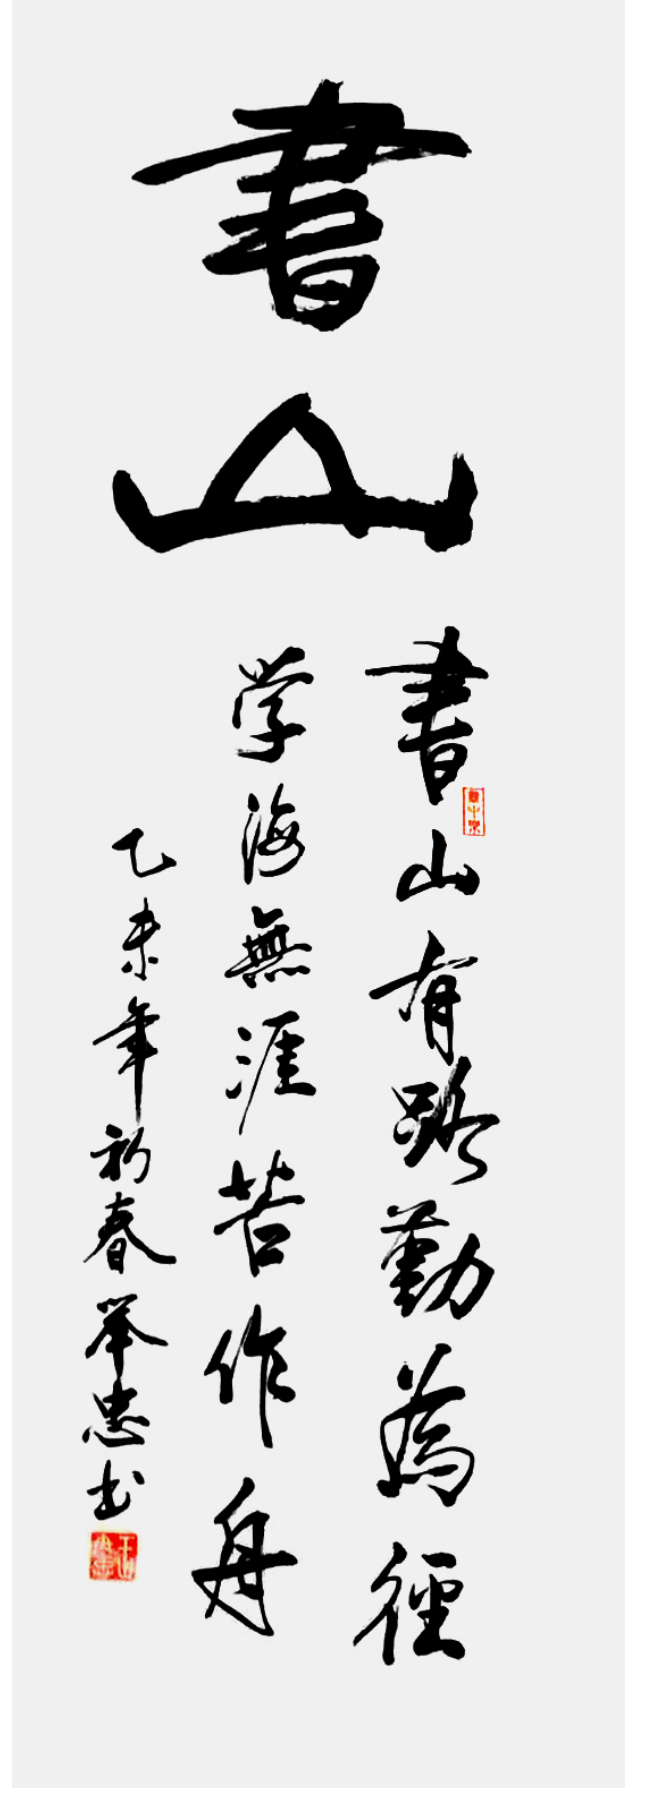 書山
書山有路勤為徑
学海無涯苦作舟
乙未年初春举忠书